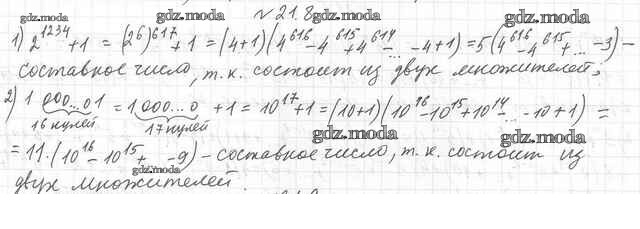 № 21.8
1) 2^1234 + 1 = (2^6)^617 + 1 = (4+1)(4^616 - 4^615 + 4^614 - ... - 4+1) = 5(4^616 - 4^615 + ... - 3) -
составное число, т.к. состоит из двух множителей.
2) 1 000...01 = 1 000...0 + 1 = 10^17 + 1 = (10+1)(10^16 - 10^15 + 10^14 - ... - 10 + 1) =
16 нулей 17 нулей
= 11·(10^16 - 10^15 + ... - 9) - составное число, т.к. состоит из
двух множителей.
gdz.moda
gdz.moda
gdz.moda
gdz.moda
gdz.moda
gdz.moda
gdz.moda